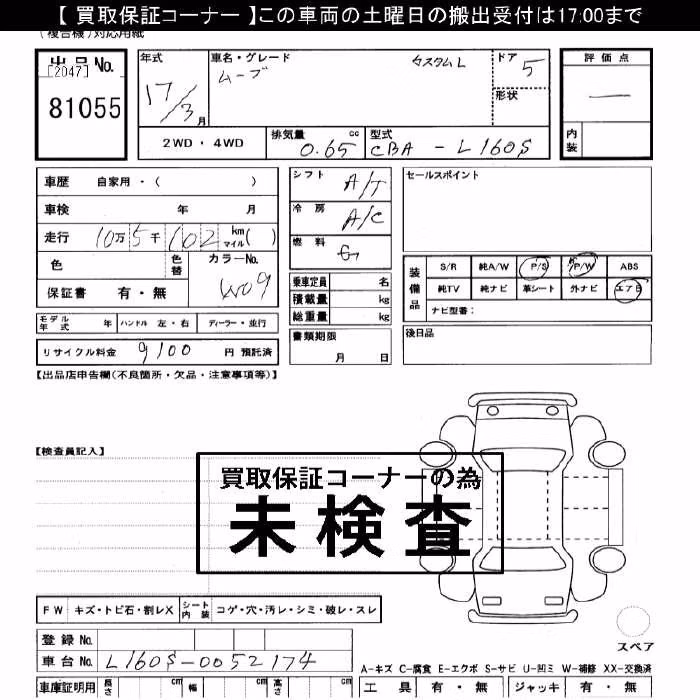 【 買取保証コーナー 】この車両の土曜日の搬出受付は17:00まで
(複合機)対応用紙
出品No.
[2047]
81055
年式
17/3 月
車名・グレード
ムーブ
カスタムL
ドア
5
形状
評価点
—
内装
2WD・4WD
排気量 0.65 cc
型式 CBA - L160S
車歴 自家用・( )
車検 年 月
走行 10万5千102 km マイル( )
色 色替 カラーNo.
W09
保証書 有・無
シフト A/T
冷房 A/C
燃料 G
乗車定員 名
積載量 kg
総重量 kg
書類期限
月 日
セールスポイント
装備品
S/R 純A/W P/S P/W ABS
純TV 純ナビ 革シート 外ナビ エアB
ナビ型番:
後日品
モデル年式 年 ハンドル 左・右 ディーラー・並行
リサイクル料金 9100 円 預託済
【出品店申告欄(不良箇所・欠品・注意事項等)】
【検査員記入】
買取保証コーナーの為
未検査
FW キズ・トビ石・割レX シート内装 コゲ・穴・汚レ・シミ・破レ・スレ
登録No.
車台No. L160S-0052174
スペア
A-キズ C-腐食 E-エクボ S-サビ U-凹ミ W-補修 XX-交換済
車庫証明用 長さ cm 幅 cm 高さ cm
工具 有・無 ジャッキ 有・無